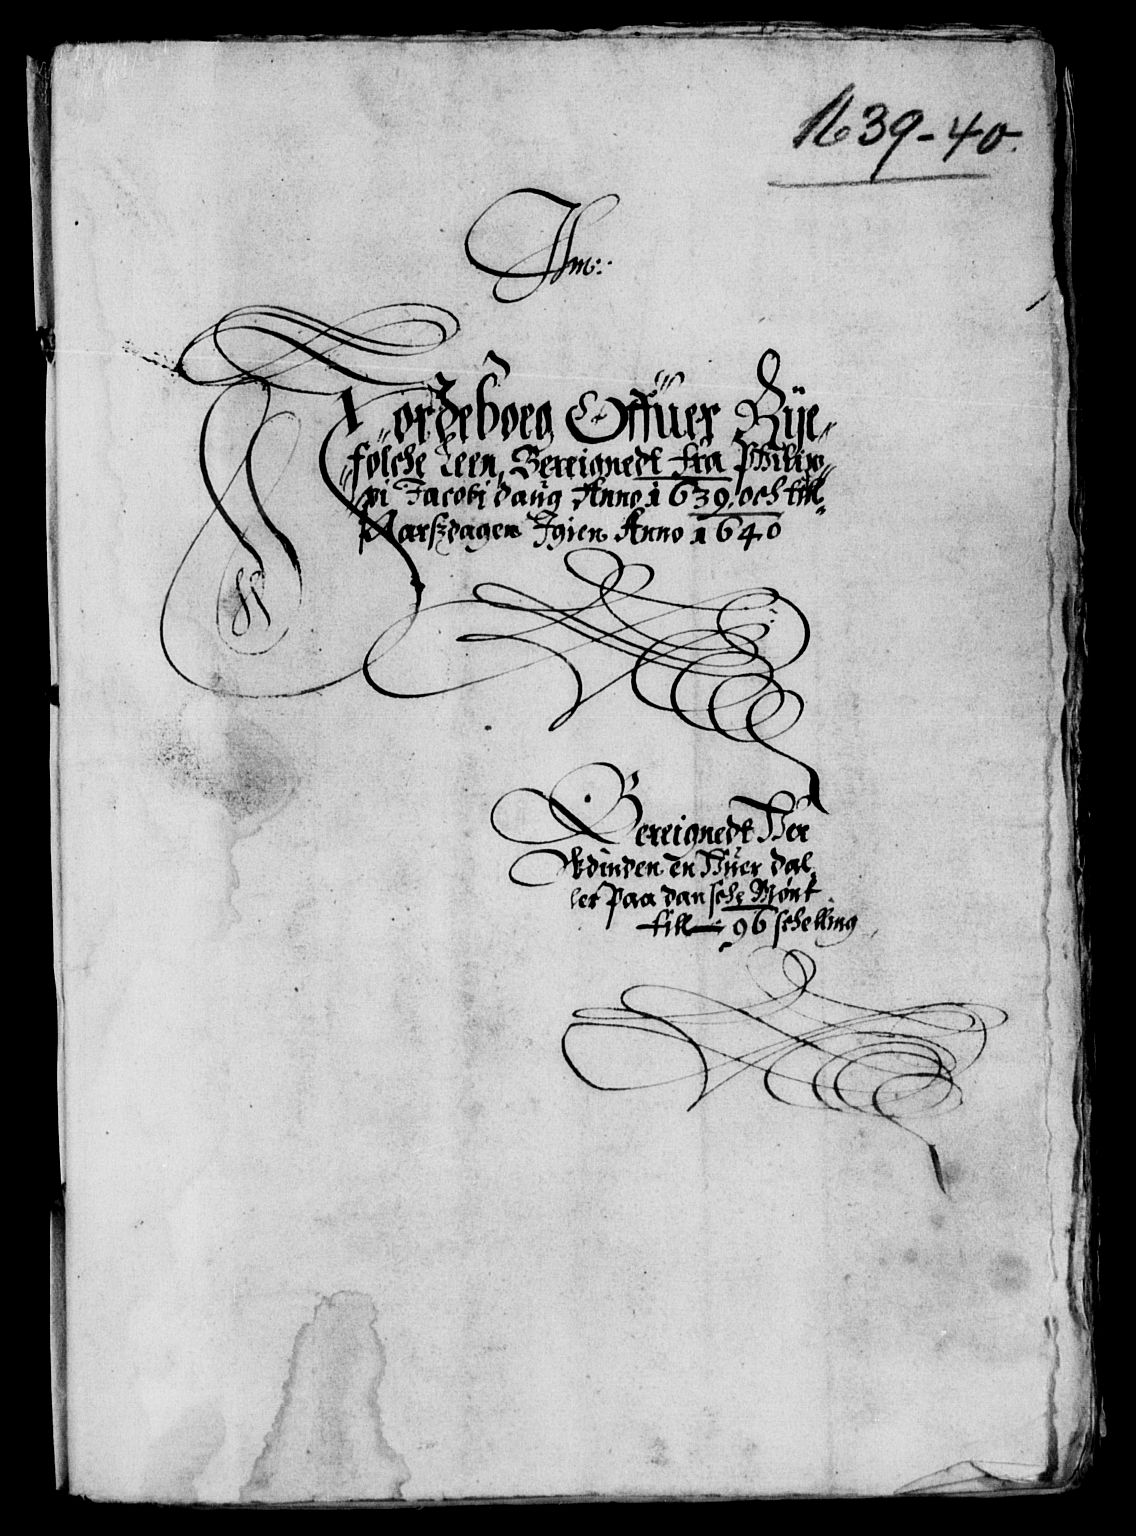 1639-40.
Jm:
Nordeborg Offuer Bye-
fosche Leen, Bereignedt fra Philip-
pi Jacobi daug Anno 1639. och till
Aarszdagen Igien Anno 1640
Bereignedt Her
Vdinden en Huer dal
ler paa dansche Mønt
till 96 schelling